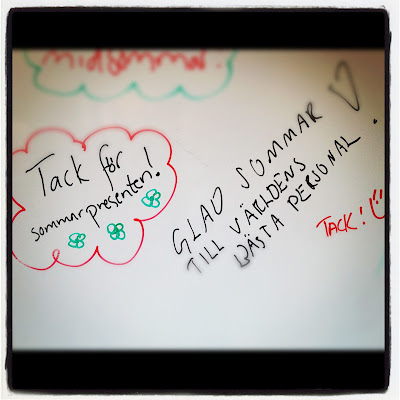 Tack för
sommarpresenten!
GLAD SOMMAR
TILL VÄRLDENS
BÄSTA PERSONAL.
TACK!